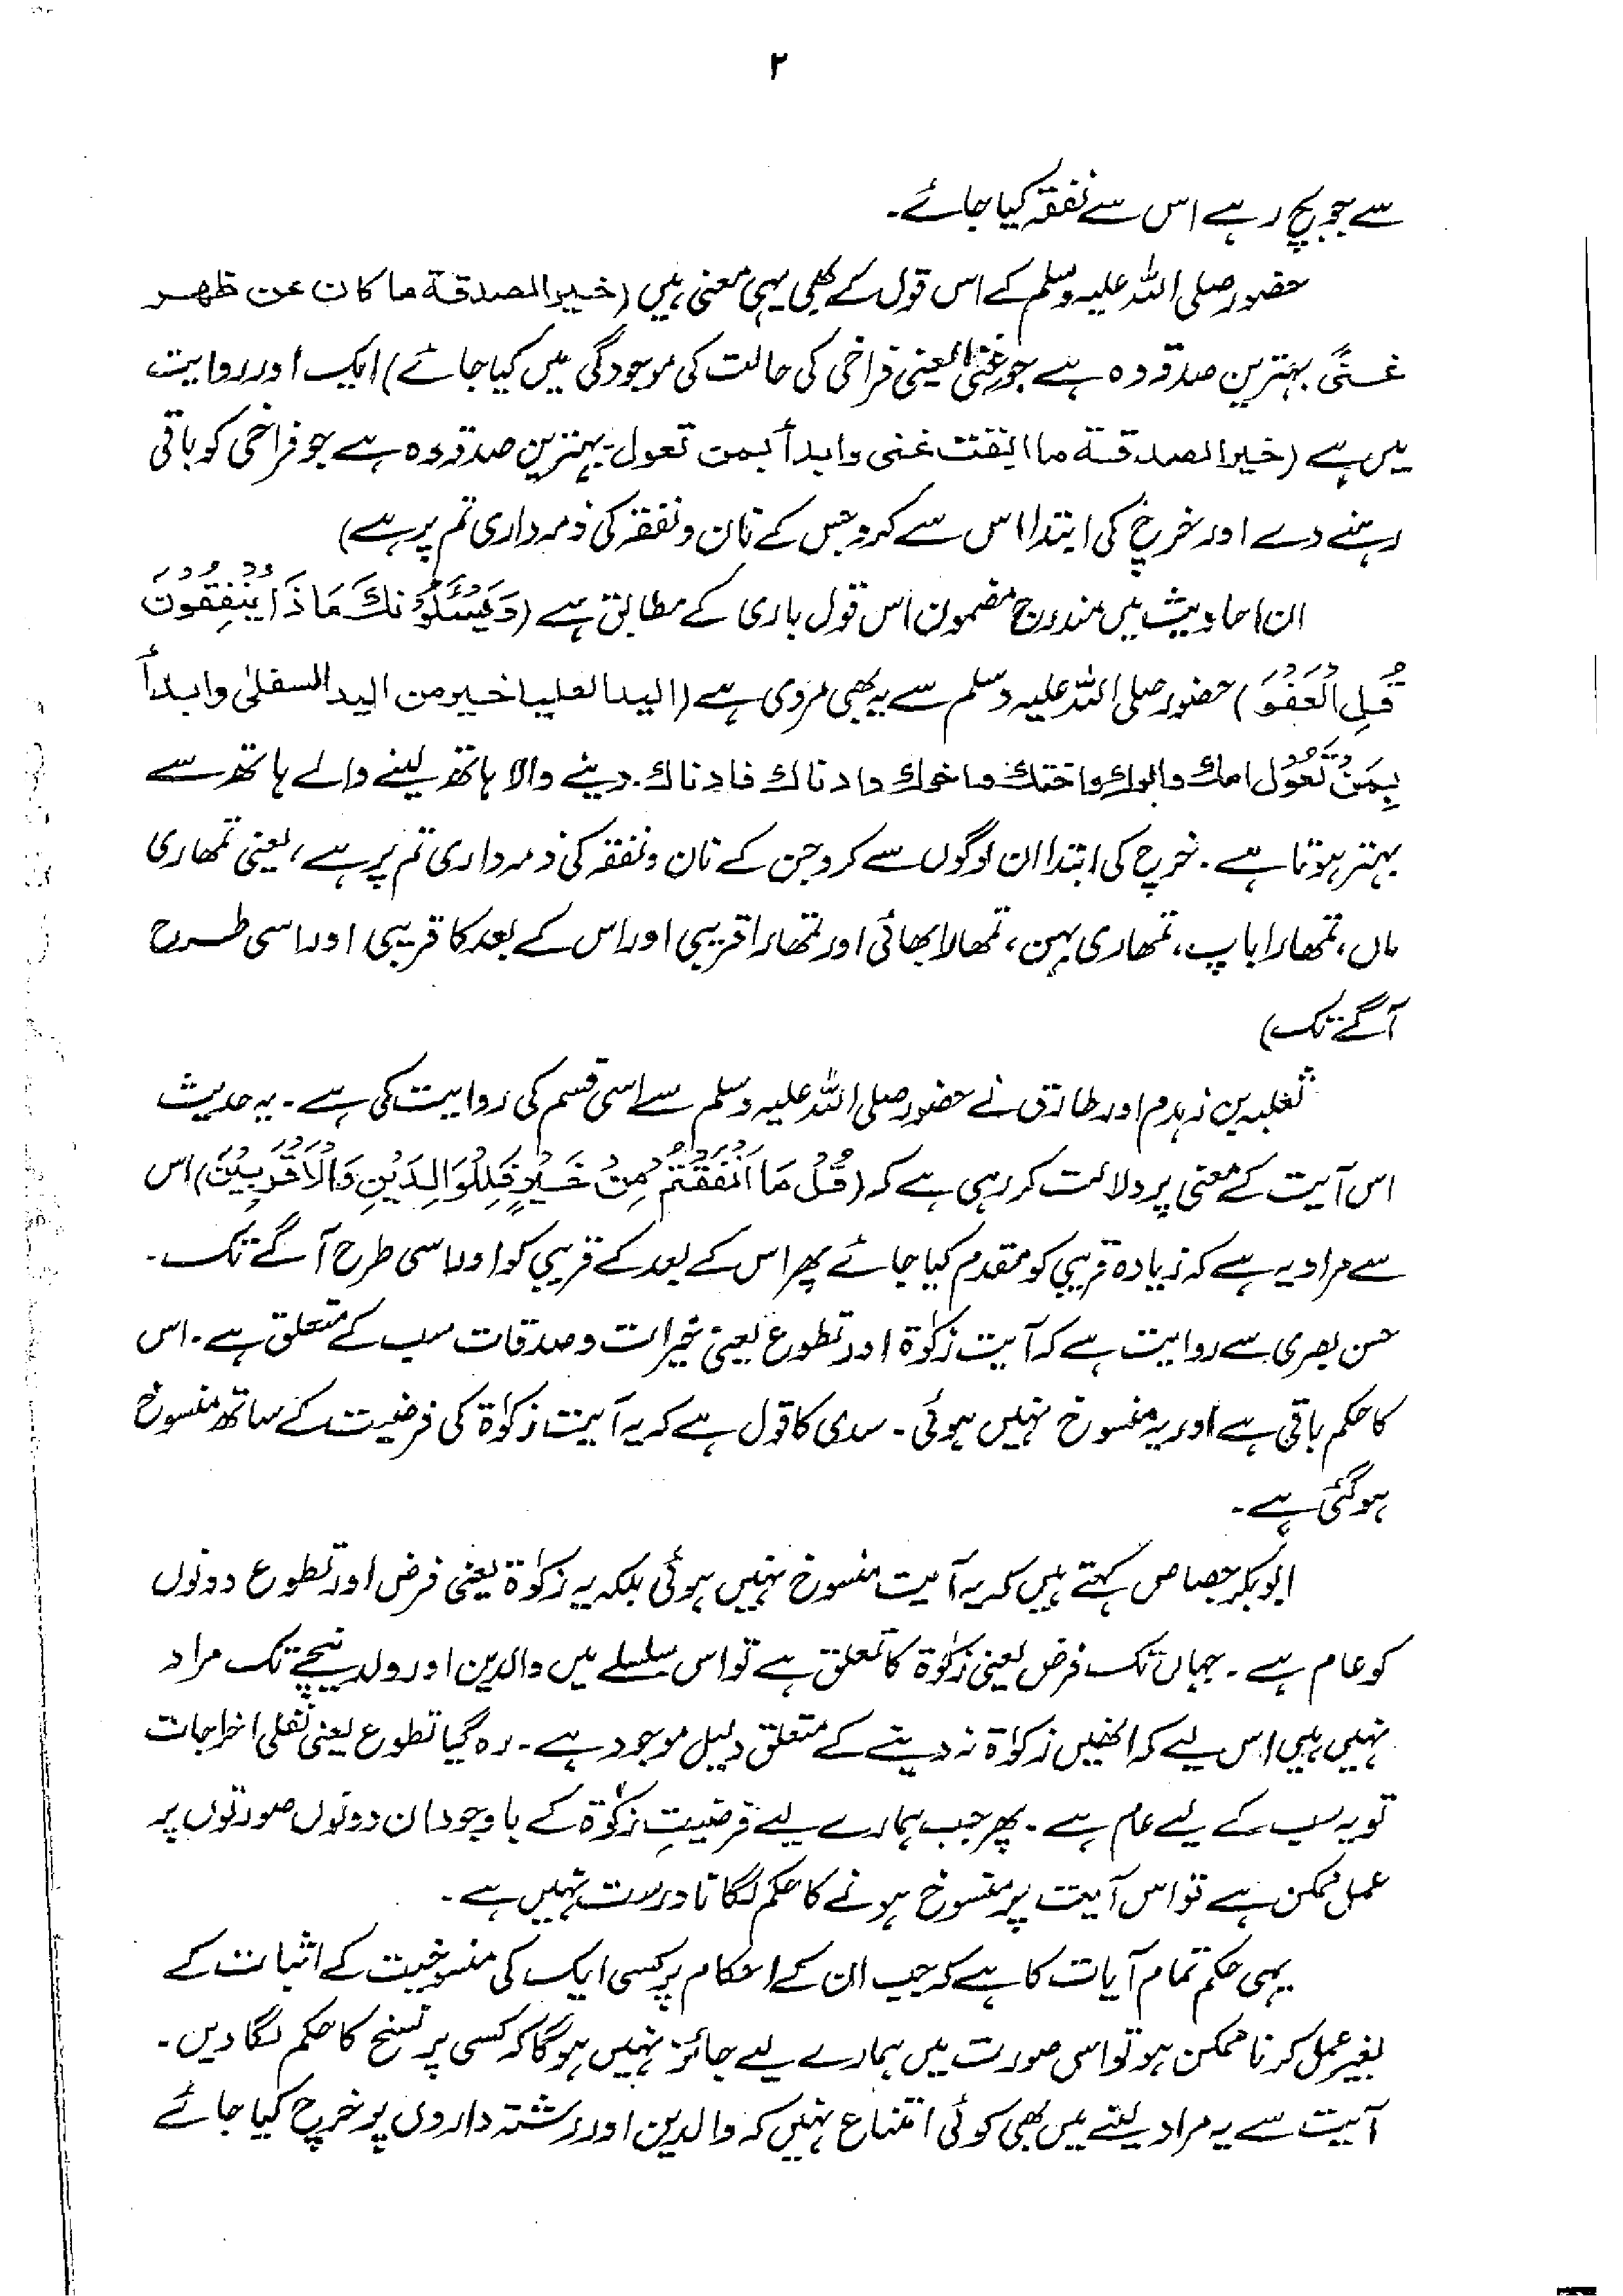 ۲
سے جو بچ رہے اس سے نفقہ کیا جائے۔
حضور صلی اللہ علیہ وسلم کے اس قول کے بھی یہی معنی ہیں (خیر الصدقة ما کان عن ظهر
غنًی بہترین صدقہ وہ ہے جو غنیٰ یعنی فراخی کی حالت کی موجودگی میں کیا جائے) ایک اور روایت
میں ہے (خیر الصدقة ما ابقت غنی وابدأ بمن تعول۔ بہترین صدقہ وہ ہے جو فراخی کو باقی
رہنے دے اور خرچ کی ابتدا اس سے کرو جس کے نان و نفقہ کی ذمہ داری تم پر ہے)
ان احادیث میں مندرج مضمون اس قول باری کے مطابق ہے (وَيَسْئَلُوْنَكَ مَاذَا يُنْفِقُوْنَ
قُلِ الْعَفْوَ) حضور صلی اللہ علیہ وسلم سے یہ بھی مروی ہے (الید العلیا خیر من الید السفلیٰ وابدأ
بِمَنْ تَعُوْل امك وابوك واختك واخوك وادناك فادناك۔ دینے والا ہاتھ لینے والے ہاتھ سے
بہتر ہوتا ہے۔ خرچ کی ابتدا ان لوگوں سے کرو جن کے نان و نفقہ کی ذمہ داری تم پر ہے، یعنی تمھاری
ماں، تمھارا باپ، تمھاری بہن، تمھارا بھائی اور تمھارا قریبی اور اس کے بعد کا قریبی اور اسی طرح
آگے تک)
ثعلبہ بن زہدم اور طارق نے حضور صلی اللہ علیہ وسلم سے اسی قسم کی روایت کی ہے۔ یہ حدیث
اس آیت کے معنی پر دلالت کر رہی ہے کہ (قُلْ مَا اَنْفَقْتُمْ مِنْ خَيْرٍ فَلِلْوَالِدَيْنِ وَالْاَقْرَبِيْنَ) اس
سے مراد یہ ہے کہ زیادہ قریبی کو مقدم کیا جائے پھر اس کے بعد کے قریبی کو اور اسی طرح آگے تک۔
حسن بصری سے روایت ہے کہ آیت زکوٰۃ اور تطوع یعنی خیرات و صدقات سب کے متعلق ہے۔ اس
کا حکم باقی ہے اور یہ منسوخ نہیں ہوئی۔ سدی کا قول ہے کہ یہ آیت زکوٰۃ کی فرضیت کے ساتھ منسوخ
ہو گئی ہے۔
ابوبکر جصاص کہتے ہیں کہ یہ آیت منسوخ نہیں ہوئی بلکہ یہ زکوٰۃ یعنی فرض اور تطوع دونوں
کو عام ہے۔ جہاں تک فرض یعنی زکوٰۃ کا تعلق ہے تو اس سلسلے میں والدین اور ولد نیچے تک مراد
نہیں ہیں اس لیے کہ انھیں زکوٰۃ نہ دینے کے متعلق دلیل موجود ہے۔ رہ گیا تطوع یعنی نفلی اخراجات
تو یہ سب کے لیے عام ہے۔ پھر جب ہمارے لیے فرضیتِ زکوٰۃ کے باوجود ان دونوں صورتوں پر
عمل ممکن ہے تو اس آیت پر منسوخ ہونے کا حکم لگانا درست نہیں ہے۔
یہی حکم تمام آیات کا ہے کہ جب ان کے احکام پر کسی ایک کی منسوخیت کے اثبات کے
بغیر عمل کرنا ممکن ہو تو اس صورت میں ہمارے لیے جائز نہیں ہوگا کہ کسی پر نسخ کا حکم لگا دیں۔
آیت سے یہ مراد لینے میں بھی کوئی امتناع نہیں کہ والدین اور رشتہ داروں پر خرچ کیا جائے